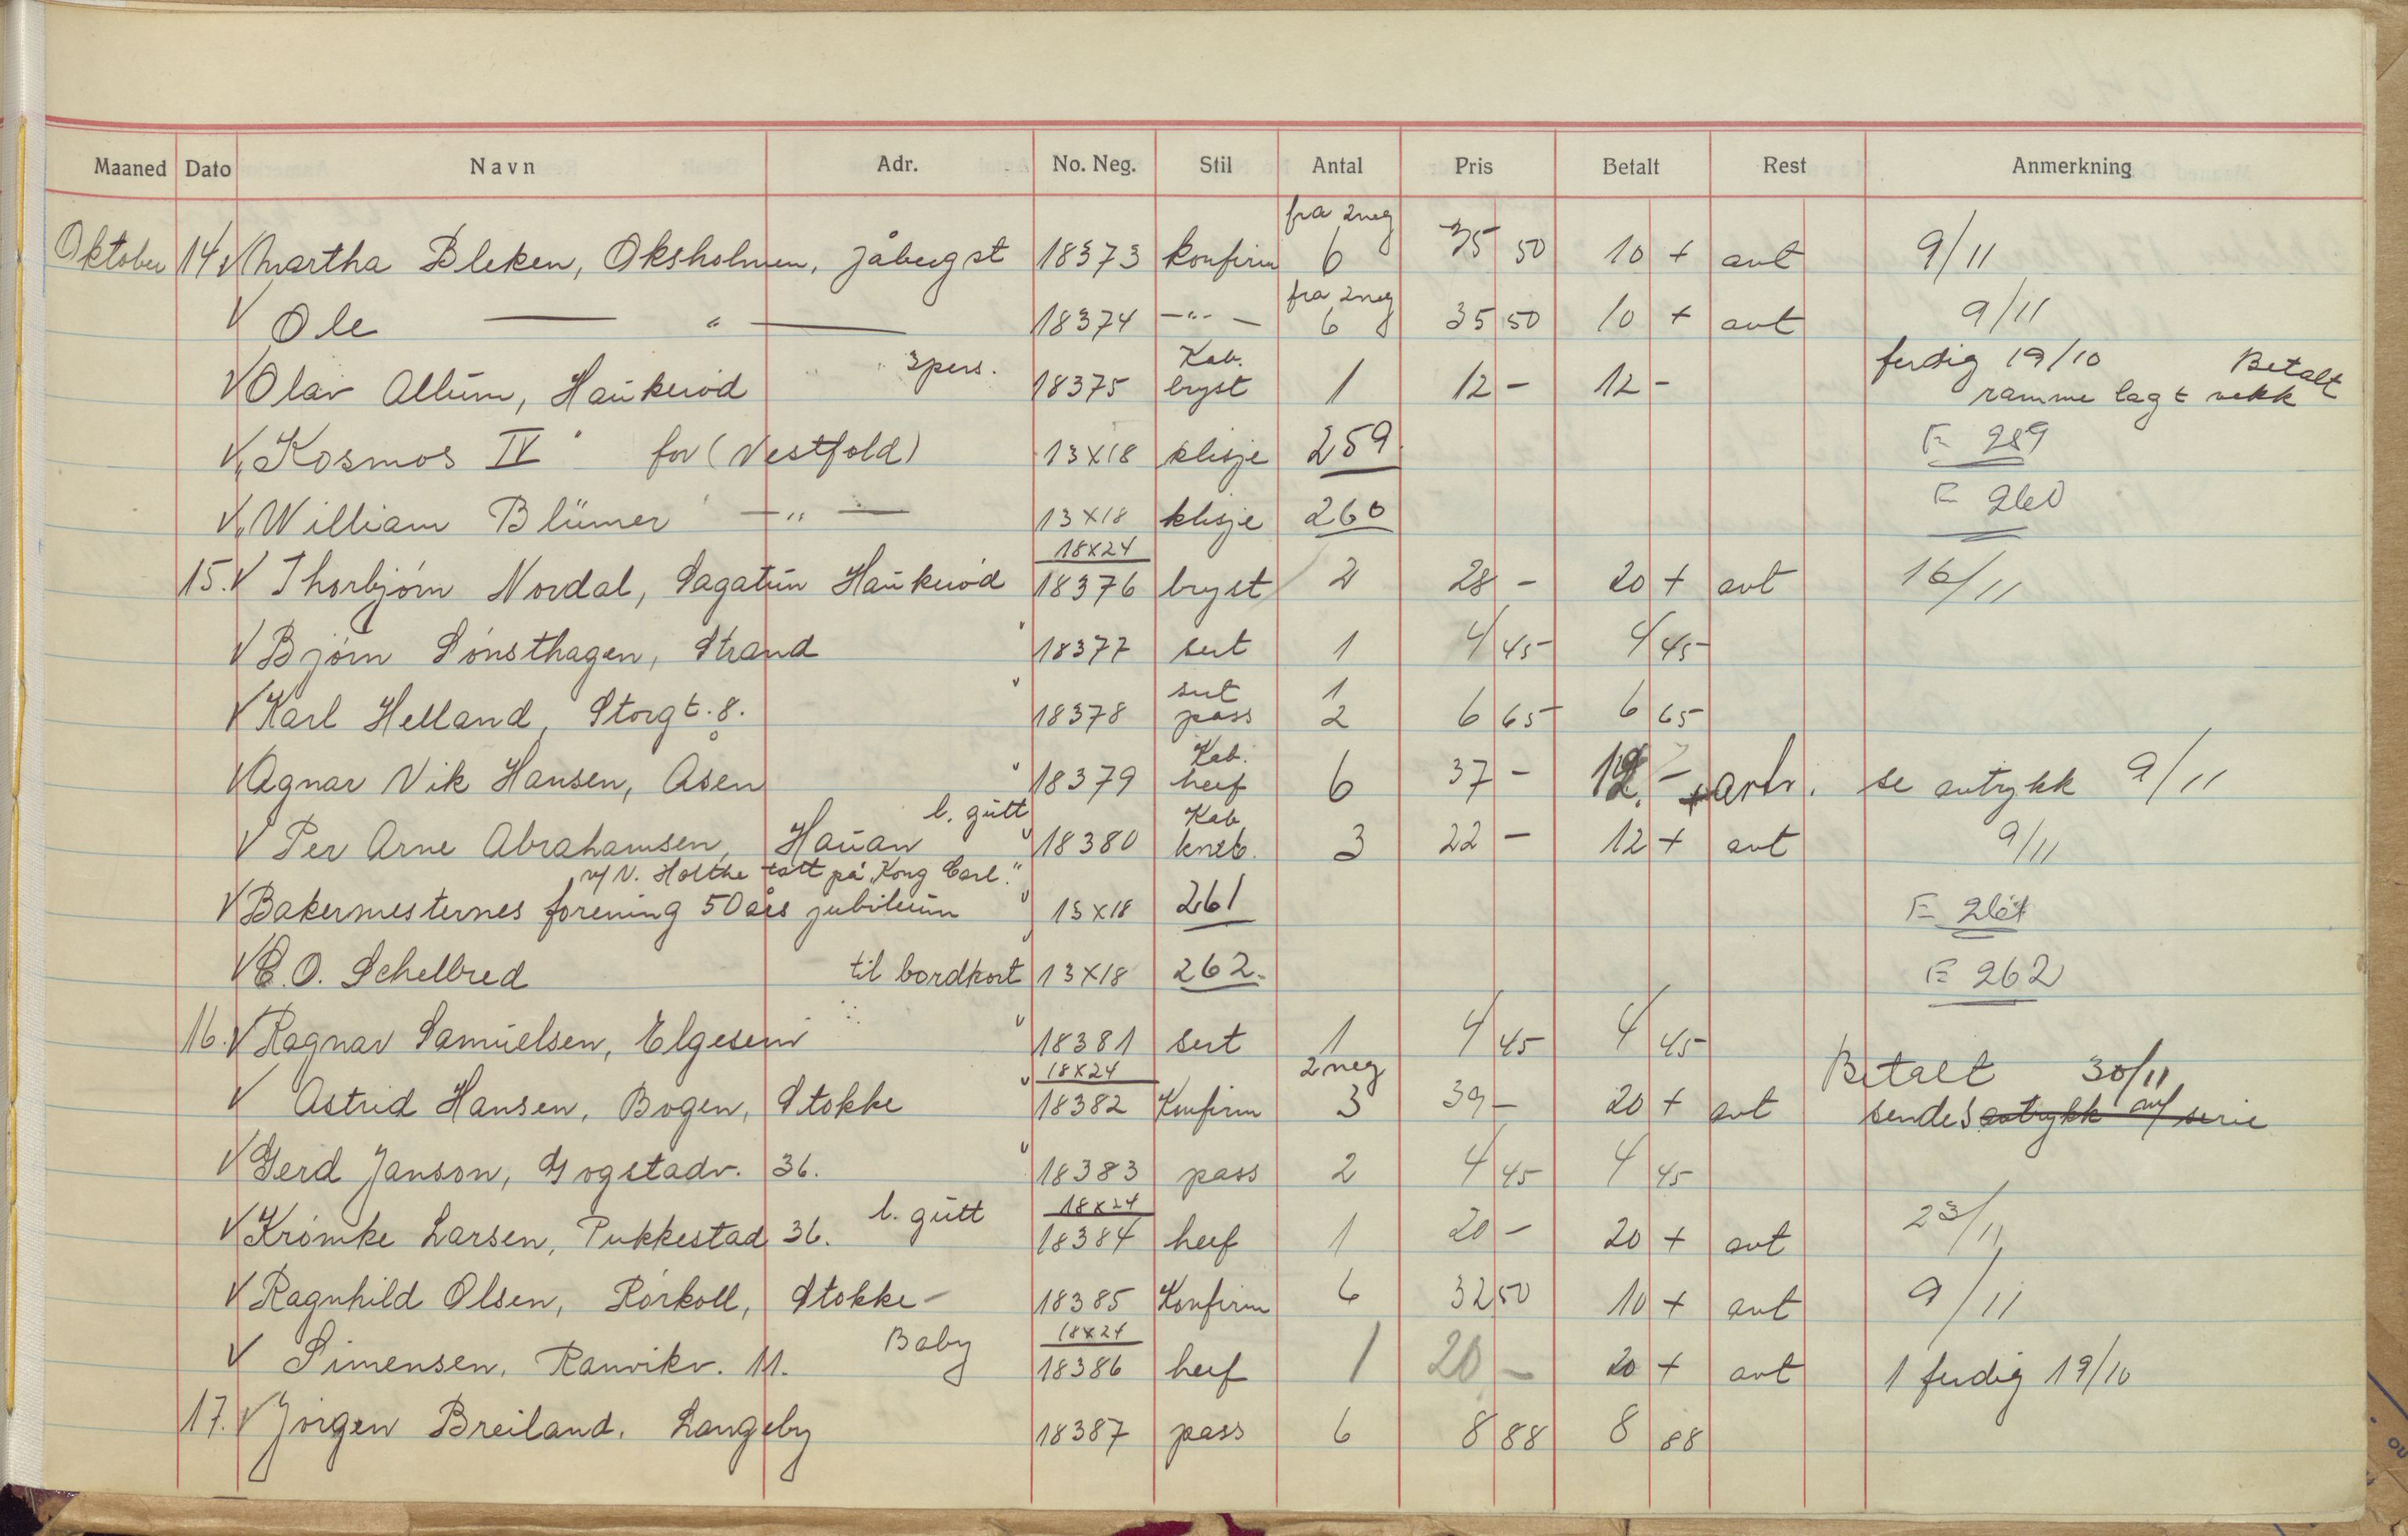 Maaned Dato Navn Adr. No. Neg. Stil Antal Pris Betalt Rest Anmerkning
fra 2neg
Oktober 14 Martha Bleken, Oksholmen, Jåbergst 18373 konfirm 6 35 50 10 + avt 9/11
fra 2neg
Ole — " — 18374 —"— 6 35 50 10 + avt 9/11
3pers. Kab. ferdig 19/10 Betalt
Olav Allum, Haukerød 18375 bryst 1 12 - 12 - ramme lagt vekk
"Kosmos IV" for (Vestfold) 13x18 klisje 259 F 259
"William Blümer" —"— 13x18 klisje 260 F 260
18x24
15. Thorbjørn Nordal, Sagatun Haukerød 18376 bryst 2 28 - 20 + avt 16/11
Bjørn Sønsthagen, Strand 18377 sert 1 4 45 4 45
sert 1
Karl Helland, Storgt. 8. 18378 pass 2 6 65 6 65
Kab.
Agnar Vik Hansen, Åsen " 18379 heef 6 37 - 12. - + avtr. se avtrykk 9/11
l. gutt Kab
Per Arne Abrahamsen, Hauan " 18380 kneb. 3 22 - 12 + avt 9/11
v/ V. Holthe tatt på "Kong Carl."
Bakermesternes forening 50 års jubileum " 13x18 261 F 261
C. O. Schelbred til bordkort 13x18 262. F 262
16. Ragnar Samuelsen, Elgesem " 18381 sert 1 4 45 4 45
" 18x24 2 neg Betalt 30/11
Astrid Hansen, Bogen, Stokke 18382 Konfirm 3 39 - 20 + avt sendes avtrykk av serie
Gerd Janson, Gogstadv. 36. " 18383 pass 2 4 45 4 45
l. gutt 18x24
Krømke Larsen, Pukkestad 36. 18384 heef 1 20 - 20 + avt 23/11
Ragnhild Olsen, Rørkoll, Stokke - 18385 Konfirm 6 32 50 10 + avt 9/11
Baby 18x24
Simensen, Ranvikv. 11. 18386 heef 1 20 - 20 + avt 1 ferdig 19/10
17. Jørgen Breiland. Langeby 18387 pass 6 8 88 8 88